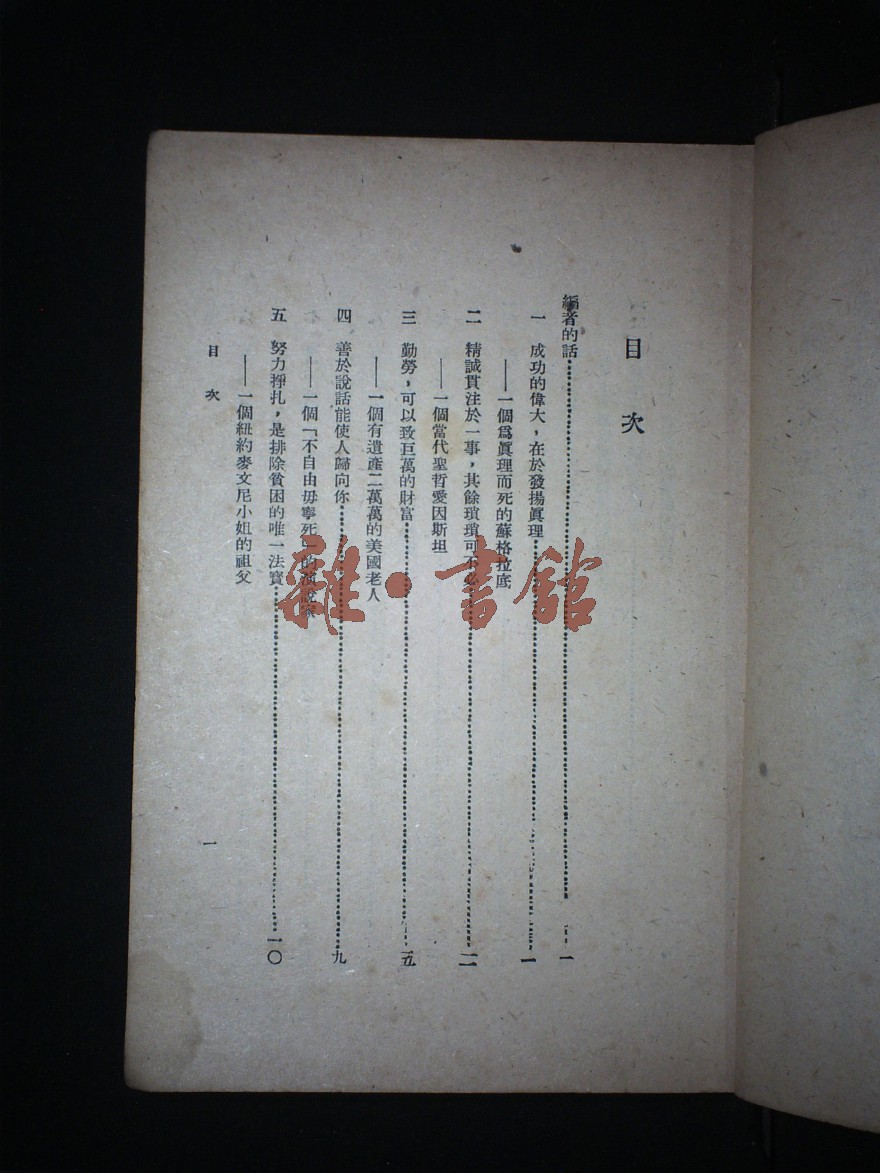 目次
編者的話 一
一 成功的偉大，在於發揚眞理 一
——一個爲眞理而死的蘇格拉底
二 精誠貫注於一事，其餘瑣瑣可不必 二
——一個當代聖哲愛因斯坦
三 勤勞，可以致巨萬的財富 五
——一個有遺產二萬萬的美國老人
四 善於說話能使人歸向你 九
——一個「不自由毋寧死」的演說家
五 努力掙扎，是排除貧困的唯一法寶 一〇
——一個紐約麥文尼小姐的祖父
目次
一
雜·書館